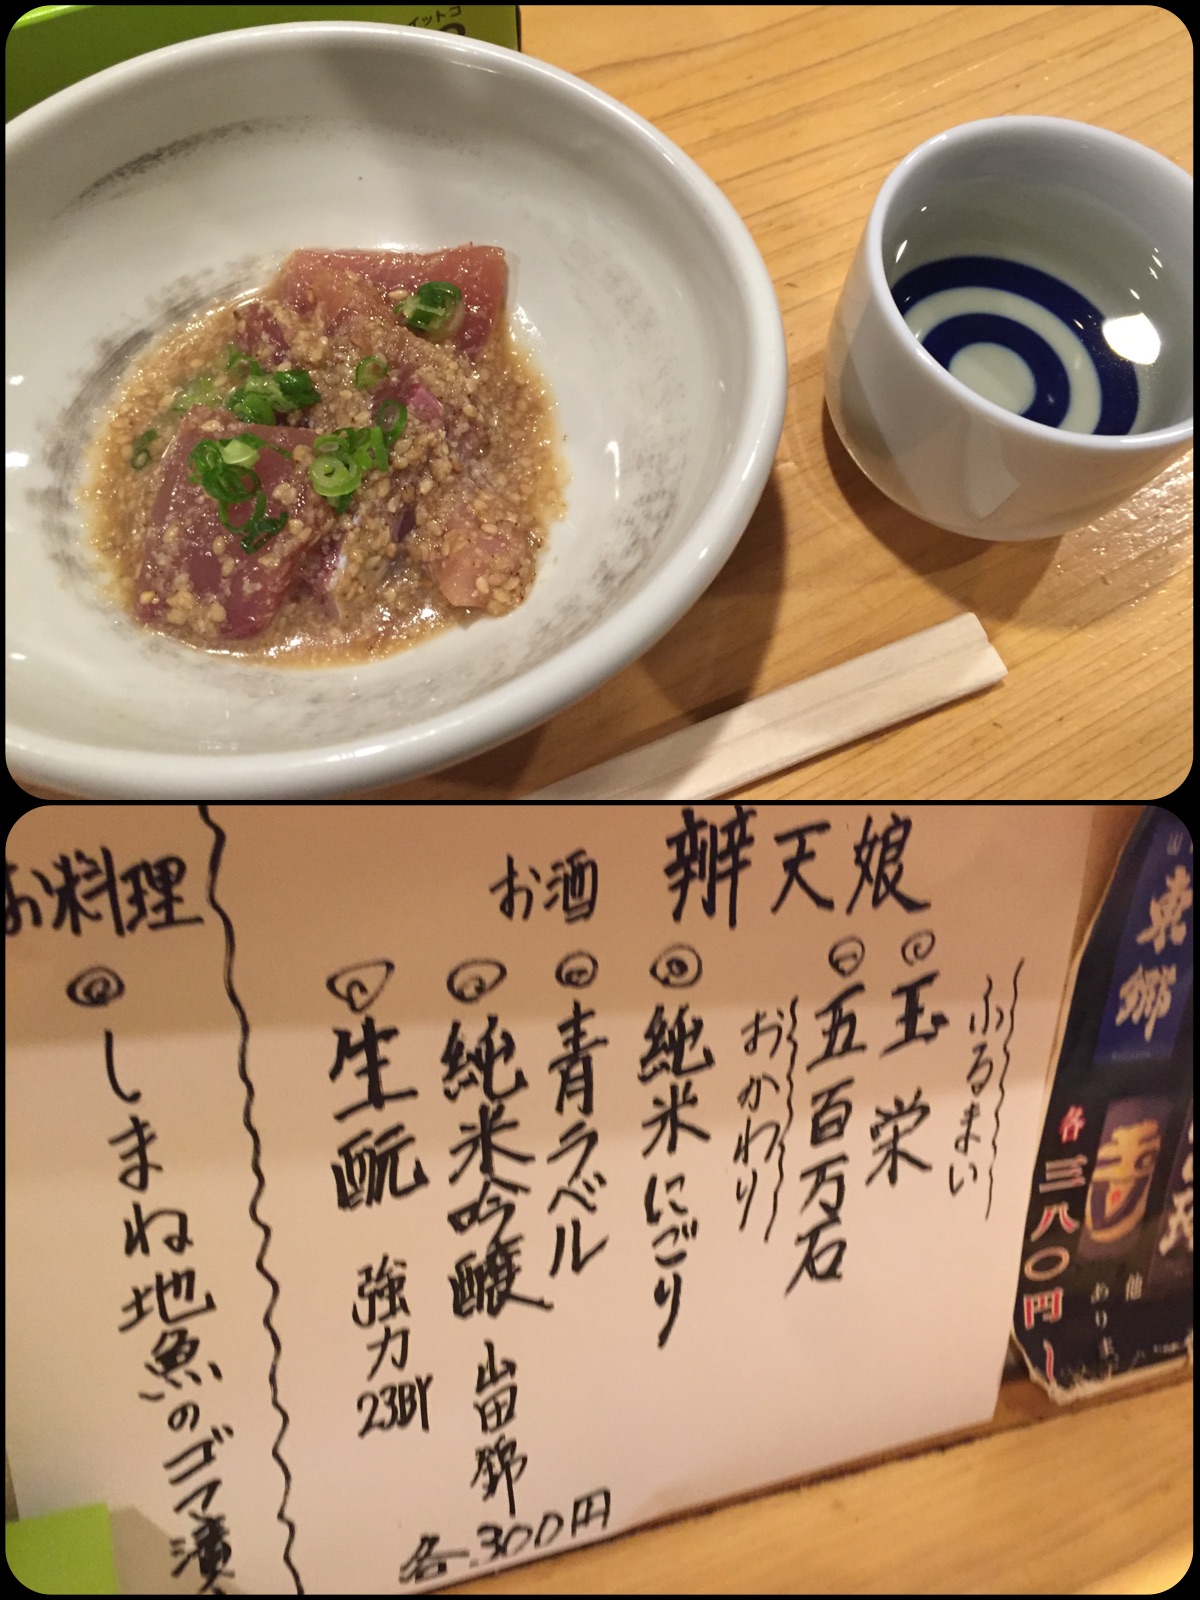 イットコ
辨天娘
ふるまい
玉栄
五百万石
おかわり
純米にごり
お酒
青ラベル
純米吟醸 山田錦
生酛 強力 23BY
各300円
お料理
しまね地魚のゴマ漬
東郷
各三八〇円〜
他
あります